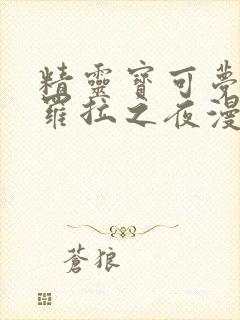 精靈寶可夢
羅拉之夜漫
蒼狼